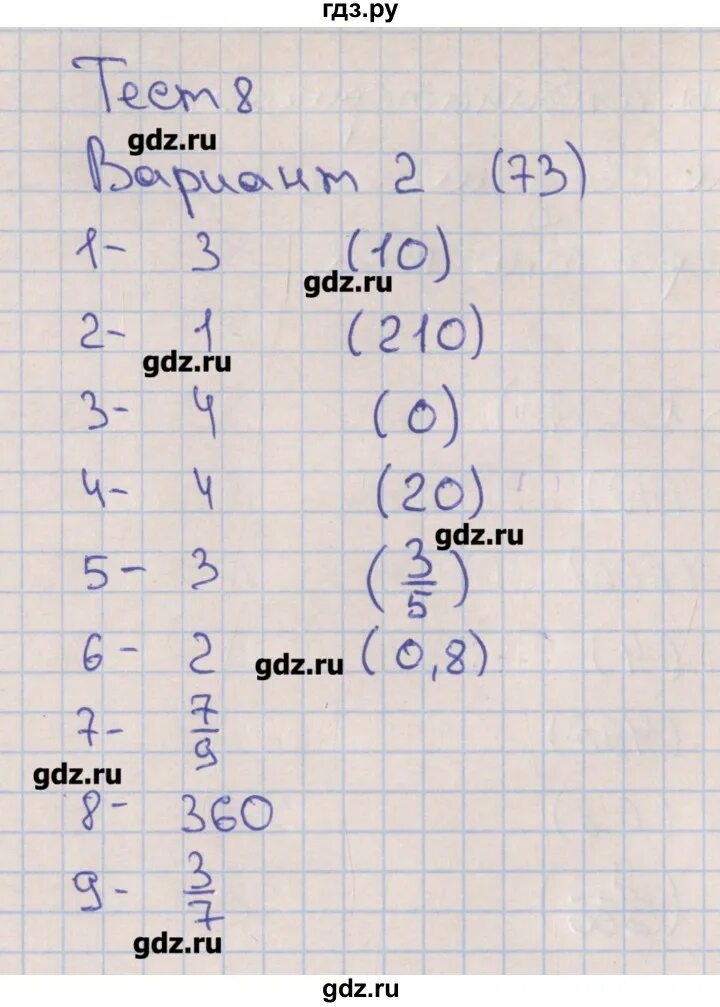 гдз.ру
Тест 8
gdz.ru
Вариант 2 (73)
1- 3 (10)
gdz.ru
2- 1 (210)
gdz.ru
3- 4 (0)
4- 4 (20)
gdz.ru
5- 3 (3/5)
6- 2 (0,8)
gdz.ru
7- 7/9
gdz.ru
8- 360
9- 3/7
gdz.ru
gdz.ru